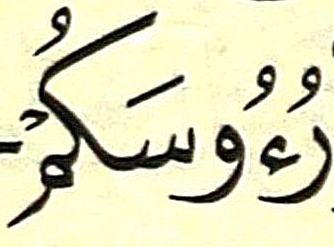 رُءُوسَكُمْ